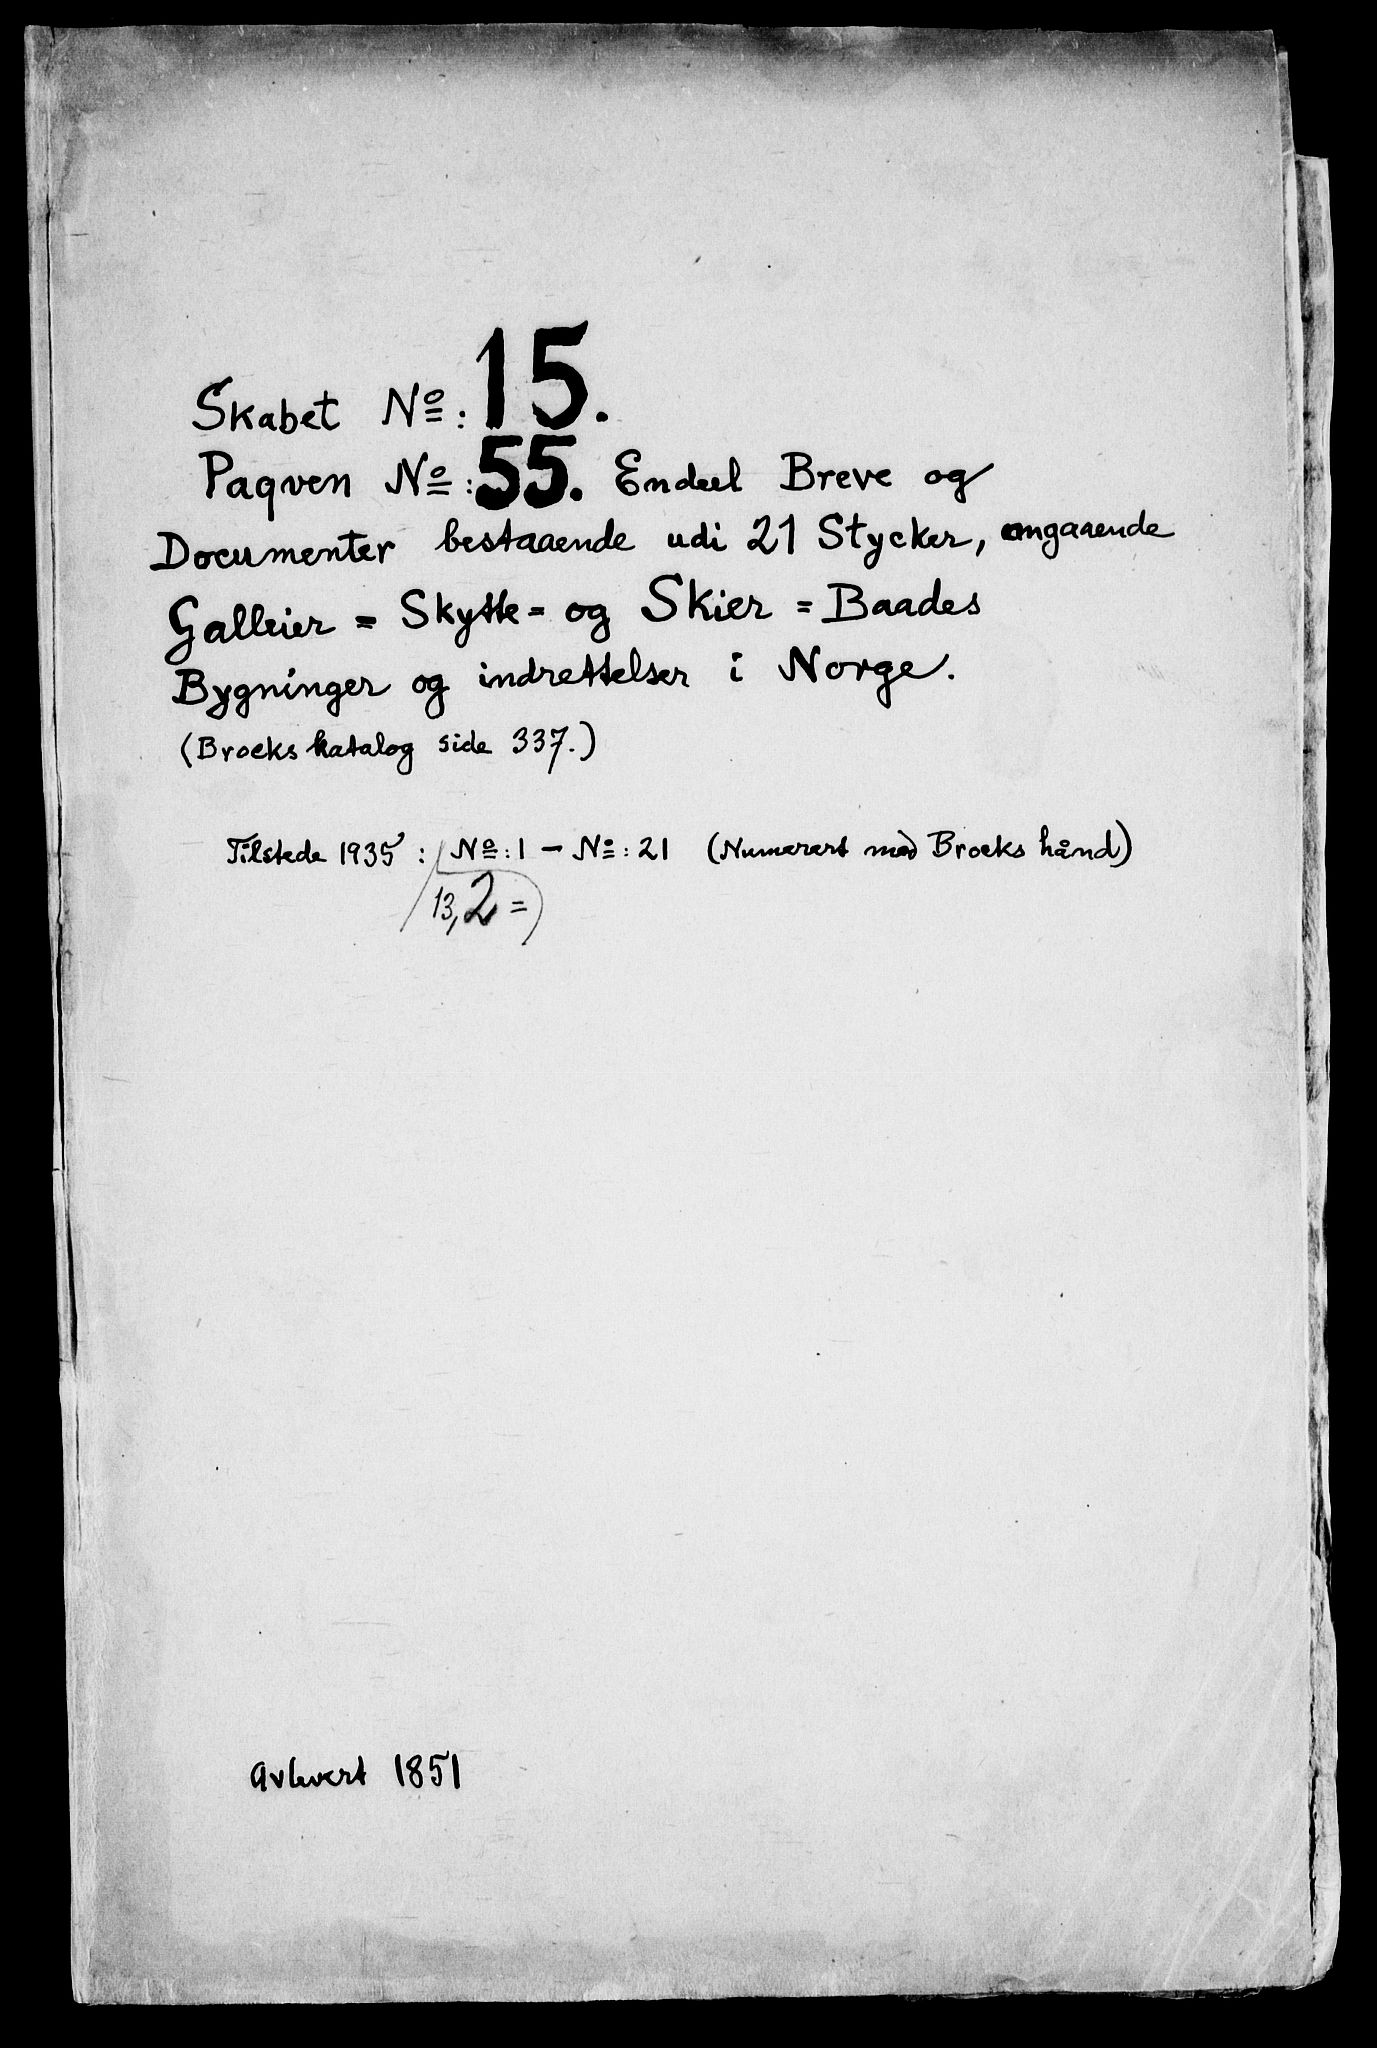 Skabet No: 15.
Paqven No: 55. Endeel Breve og
Documenter bestaaende udi 21 Stycker, angaaende
Galleier = Skytte = og Skier = Baades
Bygninger og indrettelser i Norge.
(Brocks katalog side 337.)
Tilstede 1935: No: 1 — No: 21 (Numerert med Brocks hånd)
13, 2 =
Avlevert 1851